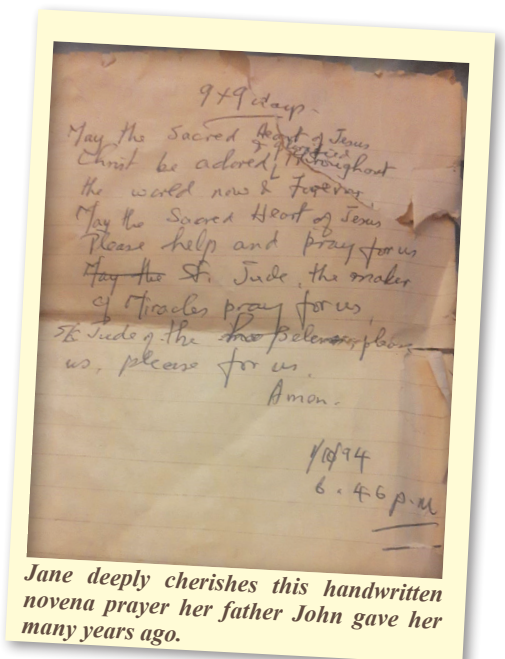 9 x 9 days.
May the Sacred Heart of Jesus
& glorified
Christ be adored, throughout
the world now & Forever,
May the Sacred Heart of Jesus
Please help and pray for us
May the St. Jude, the maker
of Miracles pray for us,
St Jude of the
us, please for us.
Amen.
1/10/94
6.46 p.M
Jane deeply cherishes this handwritten
novena prayer her father John gave her
many years ago.